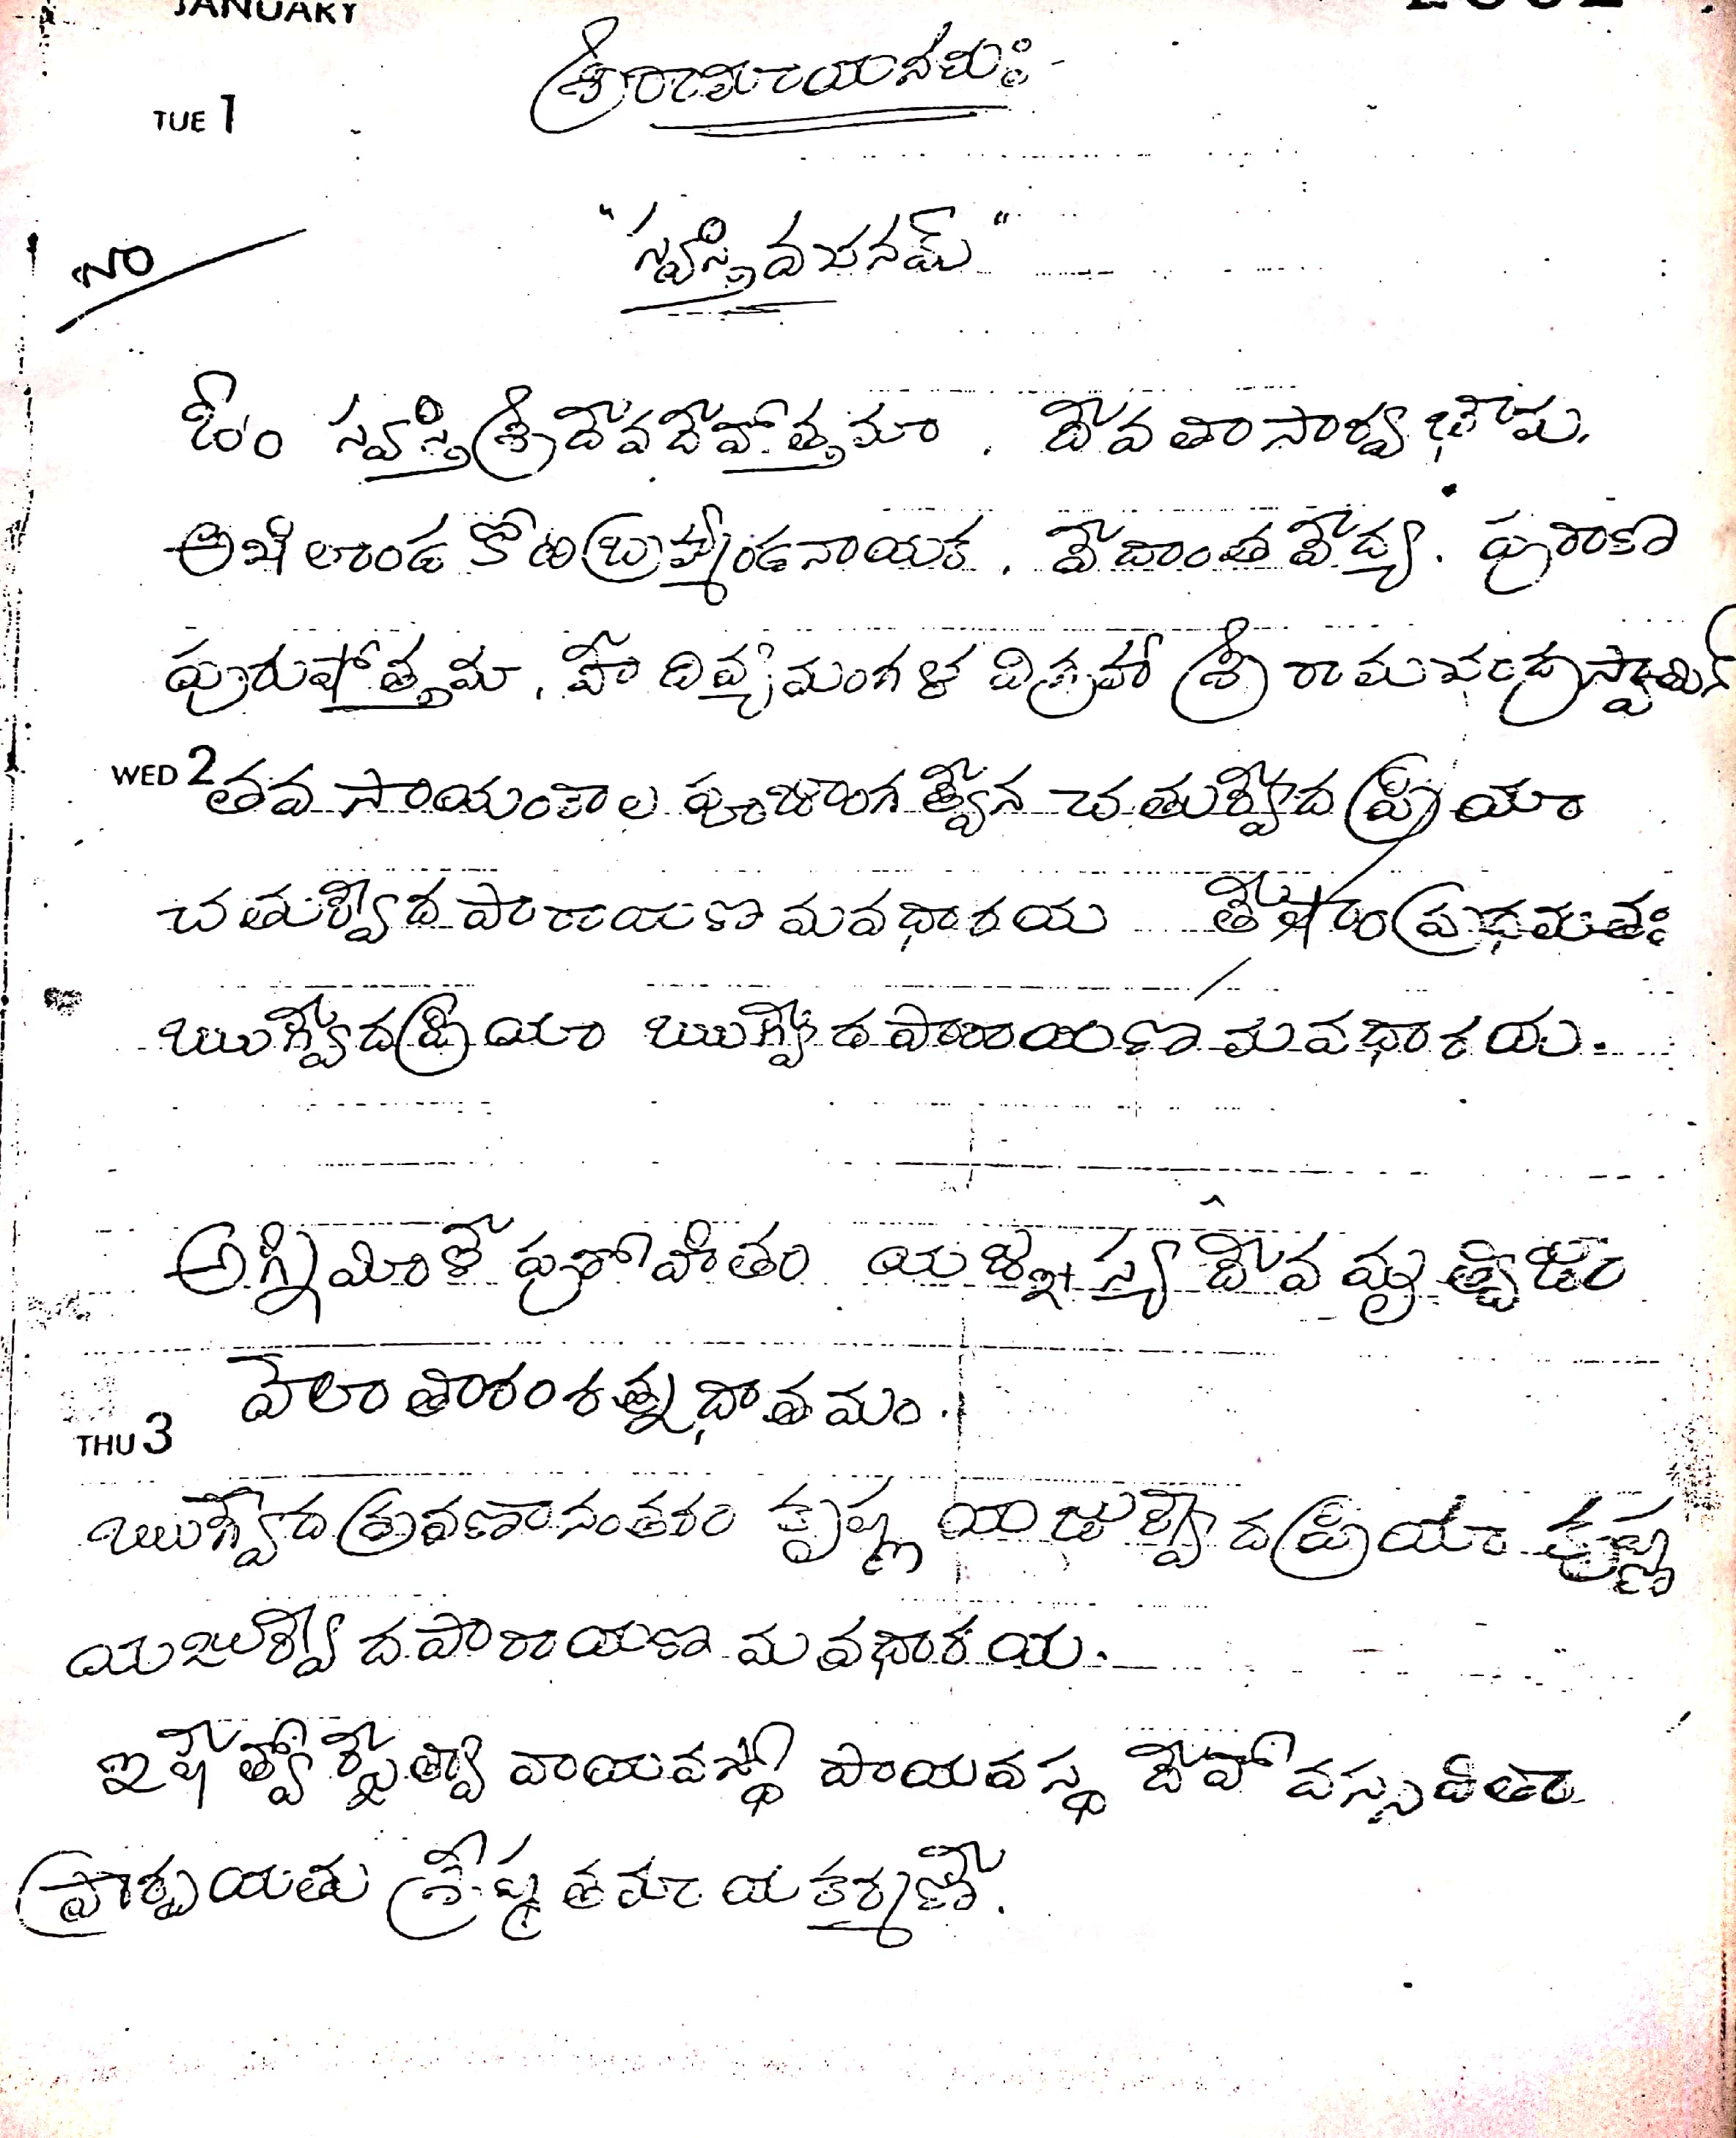 JANUARY
TUE 1
శ్రీరామాయనమః
"స్వస్తివచనమ్"
NO
ఓం స్వస్తి శ్రీదేవదేవోత్తమా . దేవతాసార్వభౌమ.
అఖిలాండ కోటిబ్రహ్మాండనాయక . వేదాంత వేద్య . పురాణ
పురుషోత్తమా , హే దివ్యమంగళ విగ్రహా శ్రీ రామచంద్రస్వామిన్
WED 2 తవ సాయంకాల పూజాంగత్వేన చతుర్వేద ప్రియా
చతుర్వేద పారాయణ మవధారయ తేషాం ప్రధమతః
ఋగ్వేదప్రియా ఋగ్వేద పారాయణ మవధారయ.
అగ్నిమీళే పురోహితం యజ్ఞస్య దేవ మృత్విజం
హోతారంరత్నధాతమం.
THU 3
ఋగ్వేద శ్రవణానంతరం కృష్ణ యజుర్వేదప్రియా కృష్ణ
యజుర్వేదపారాయణ మవధారయ.
ఇషేత్వోర్జేత్వా వాయవస్థో పాయవస్థ దేవో వస్సవితా
ప్రార్పయతు శ్రేష్ఠతమాయ కర్మణే.